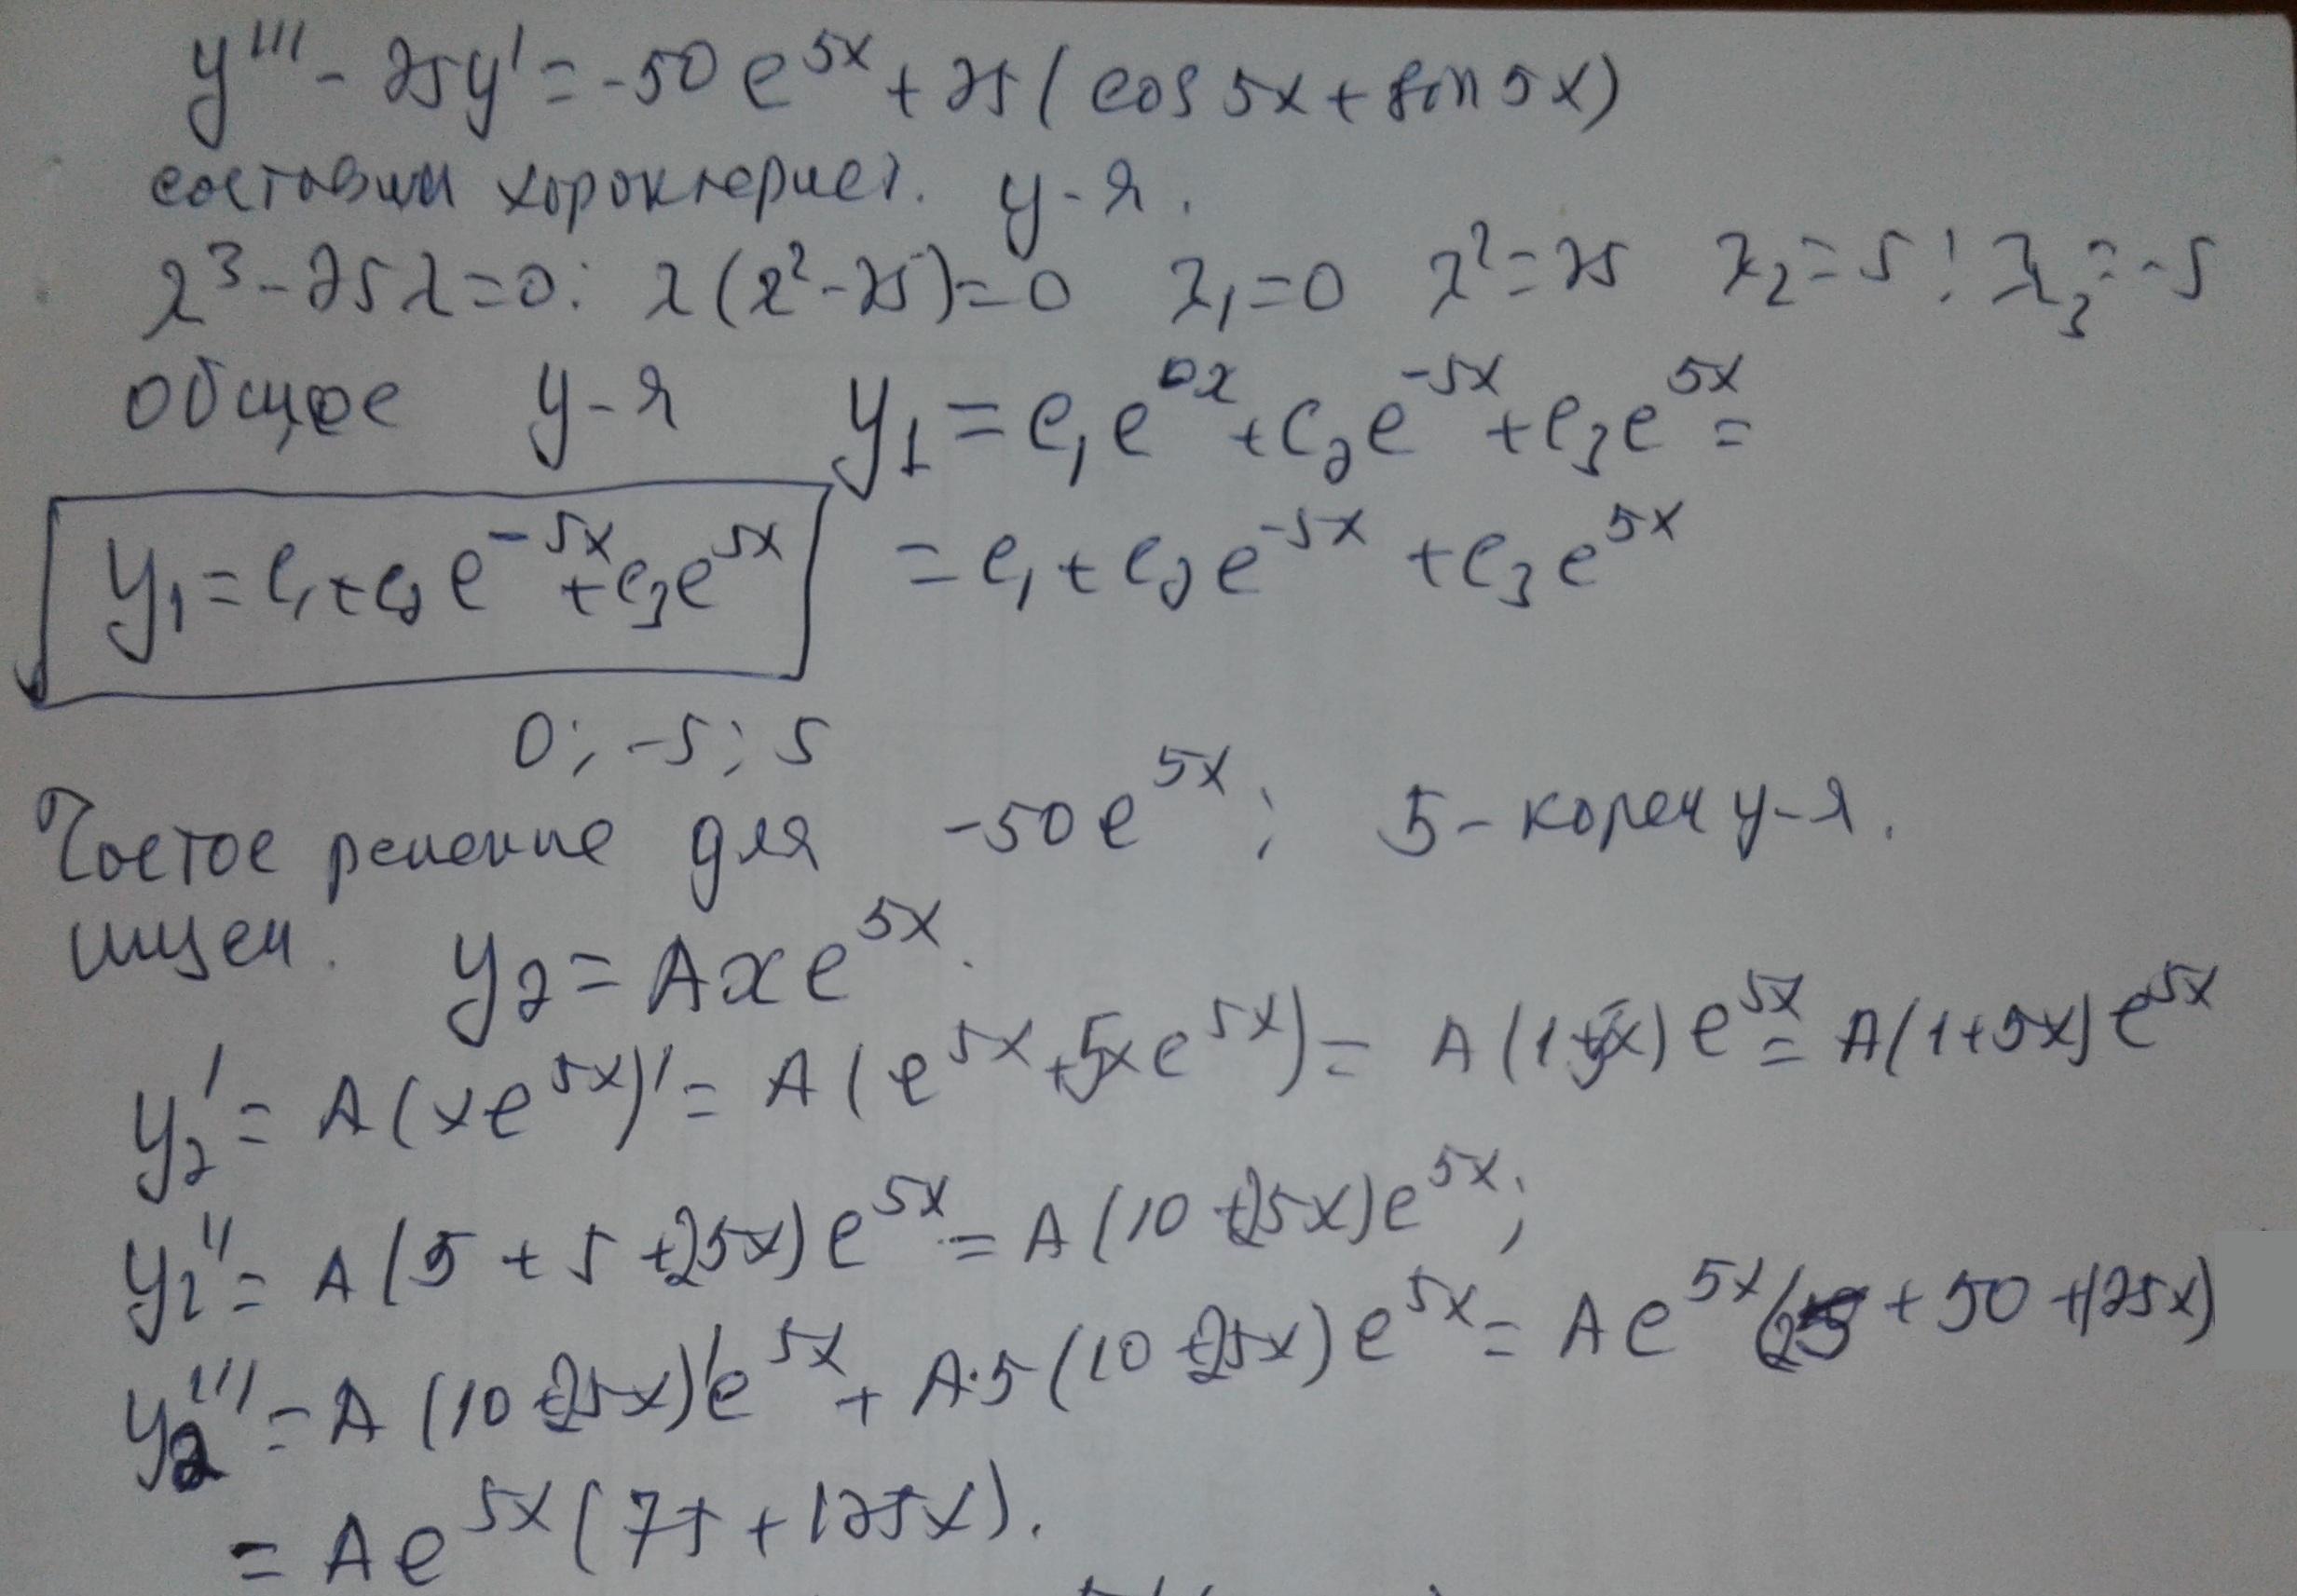 y''' - 25y' = -50e^5x + 25(cos 5x + sin 5x)
составим характерист. у-я.
λ^3 - 25λ = 0: λ(λ^2 - 25) = 0 λ_1 = 0 λ^2 = 25 λ_2 = 5; λ_3 = -5
общее у-я y_1 = c_1e^0x + c_2e^-5x + c_3e^5x =
y_1 = c_1 + c_2e^-5x + c_3e^5x = c_1 + c_2e^-5x + c_3e^5x
0; -5; 5
Частое решение для -50e^5x; 5 - корен у-я.
ищем. y_2 = Axe^5x.
y_2' = A(xe^5x)' = A(e^5x + 5xe^5x) = A(1+5x)e^5x = A(1+5x)e^5x
y_2'' = A(5 + 5 + 25x)e^5x = A(10+25x)e^5x;
y_2''' = A(10+25x)'e^5x + A·5(10+25x)e^5x = Ae^5x(25 + 50 + 125x)
= Ae^5x(75 + 125x).